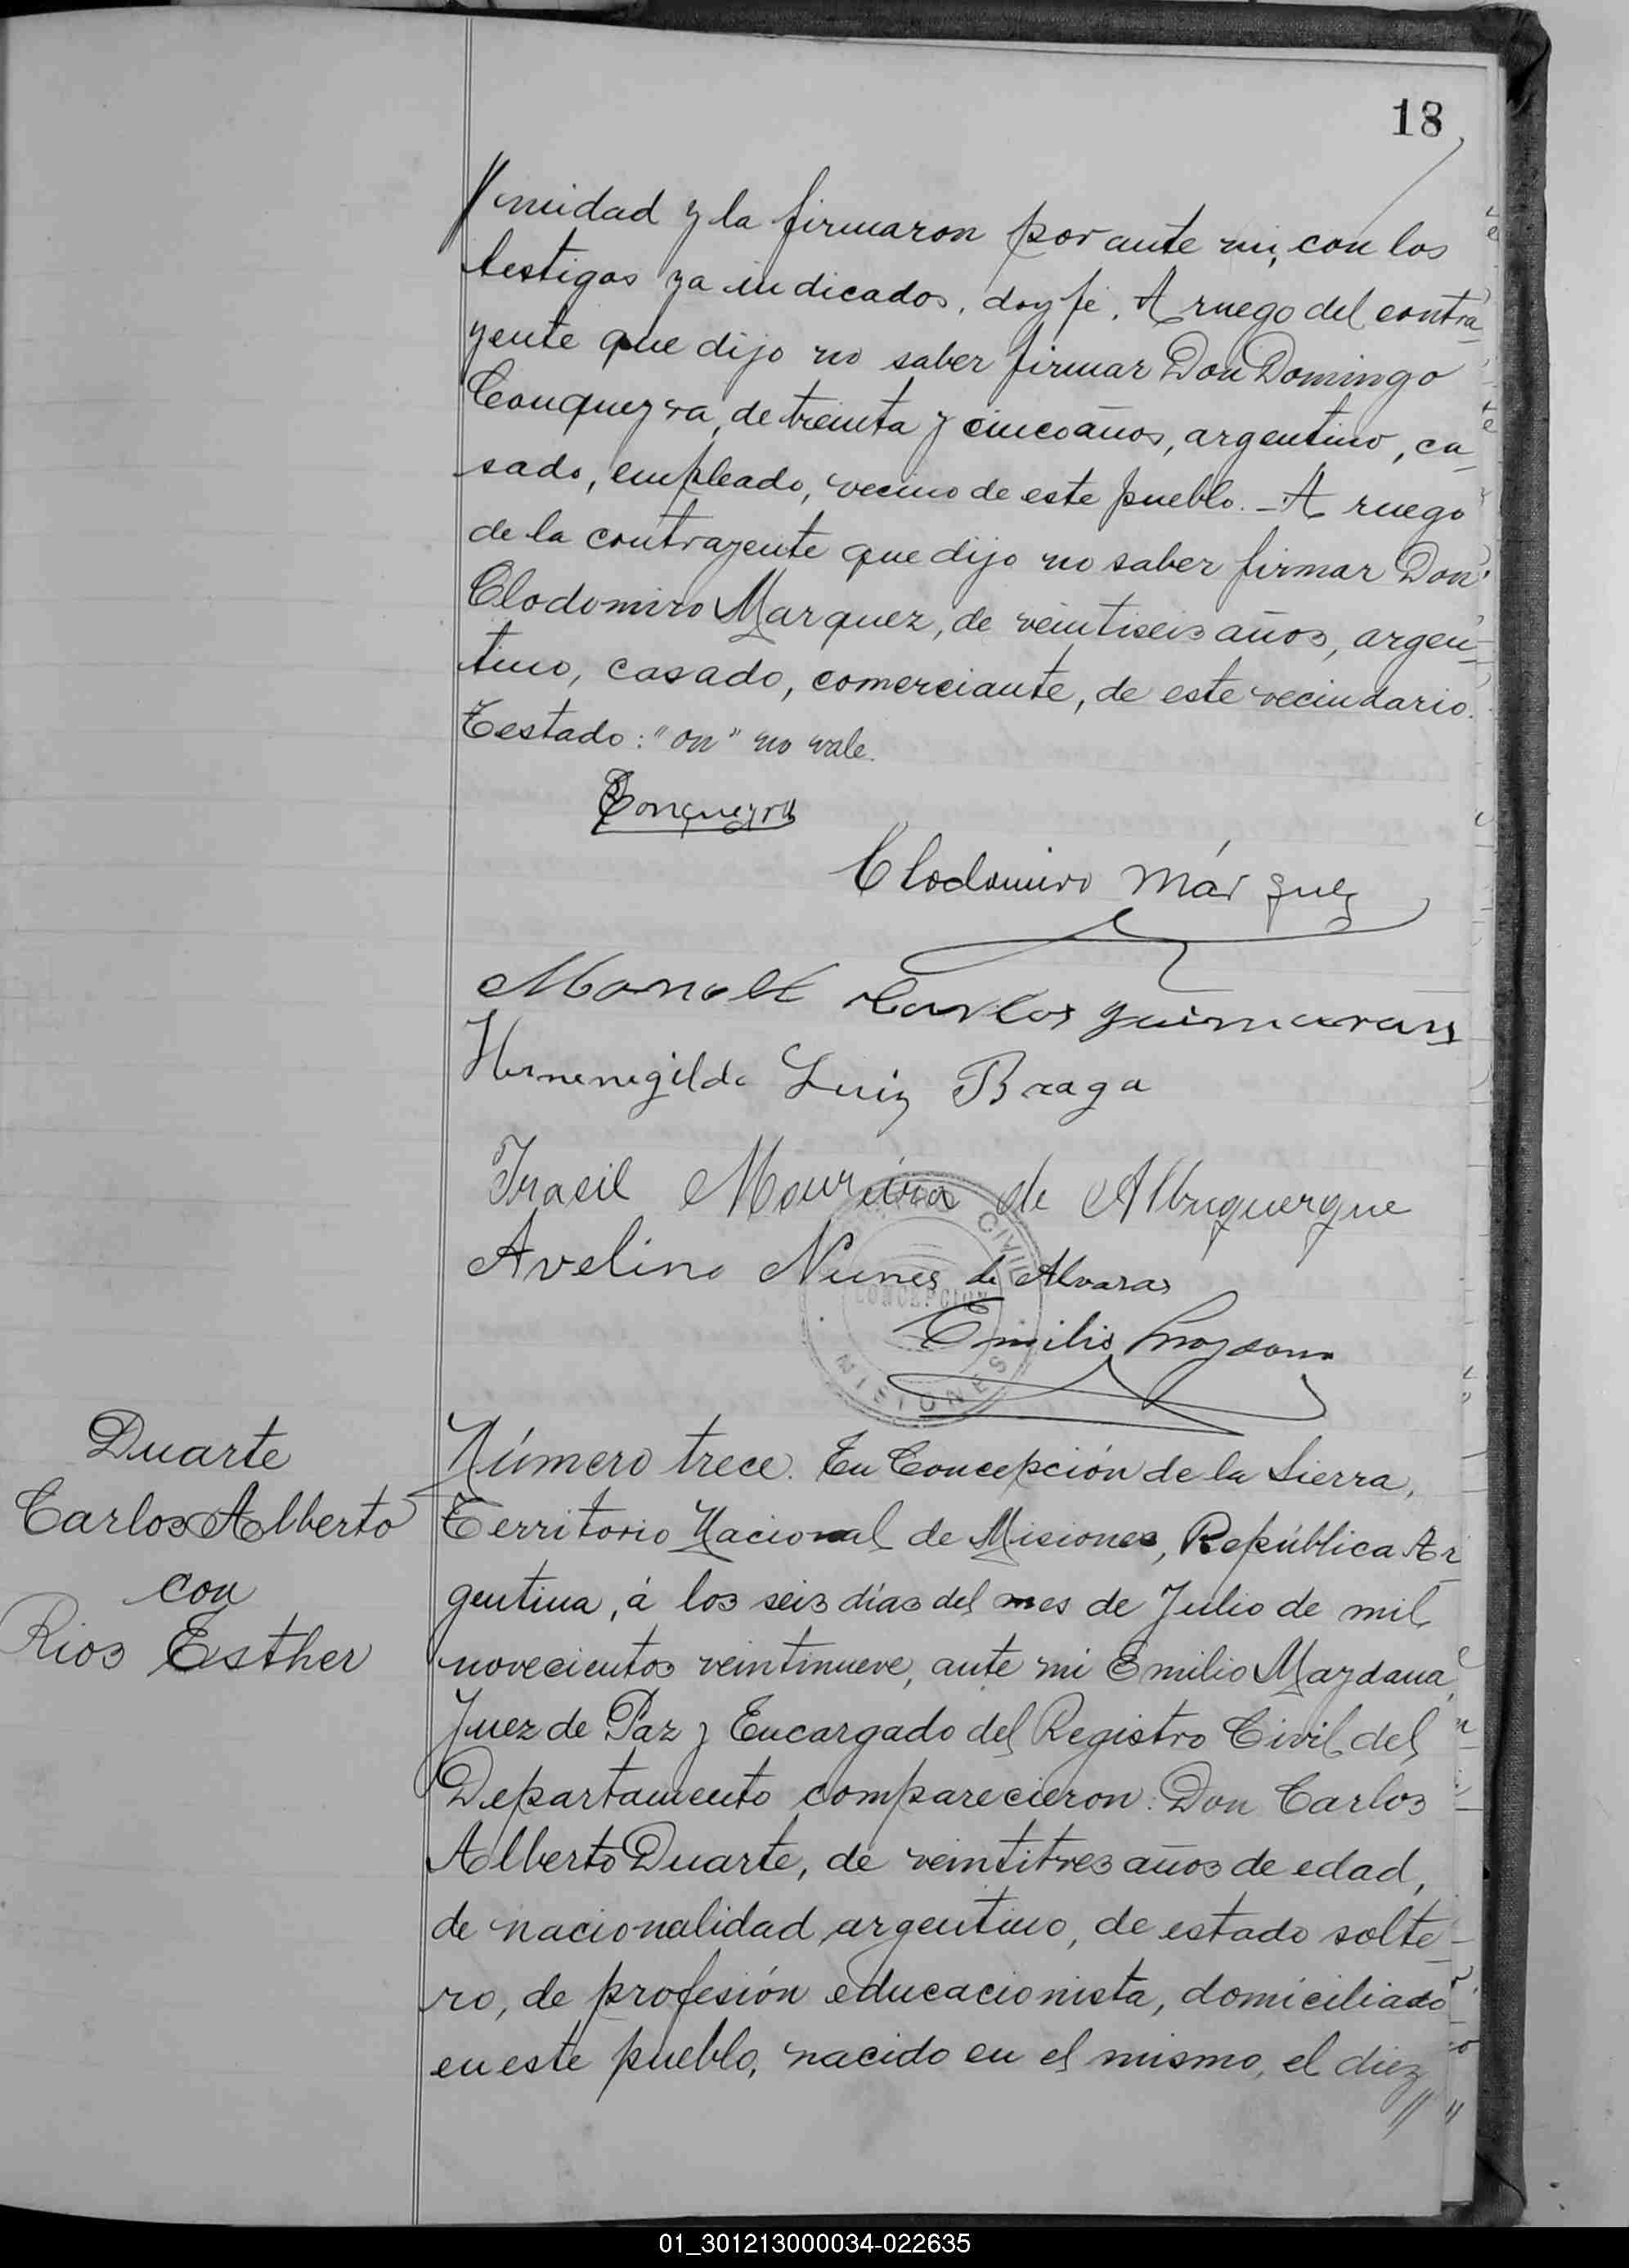 18
//midad y la firmaron por ante mi, con los
testigos ya indicados, doy fé. A ruego del contra
yente que dijo no saber firmar Don Domingo
Conqueyra, de treinta y cinco años, argentino, ca
sado, empleado, vecino de este pueblo. - A ruego
de la contrayente que dijo no saber firmar Don
Clodomiro Marquez, de veintiseis años, argen
tino, casado, comerciante, de este vecindario.
Testado: "on" no vale.
Conqueyra
Clodomiro Márquez
Carlos Guimaraes
Hermenegildo Luiz Braga
Irasil Moureira de Albuquerque
Avelino Nunes de Alvaras
CIVIL
CONCEPCION
MISIONES
Emilio Maydana
Duarte
Carlos Alberto
con
Rios Esther
Número trece. En Concepción de la Sierra,
Territorio Nacional de Misiones, República Ar
gentina, á los seis días del mes de Julio de mil
novecientos veintinueve, ante mi Emilio Maydana,
Juez de Paz y Encargado del Registro Civil del
Departamento comparecieron: Don Carlos
Alberto Duarte, de veintitres años de edad,
de nacionalidad argentino, de estado solte
ro, de profesión educacionista, domiciliado
en este pueblo, nacido en el mismo, el diez//
01_301213000034-022635